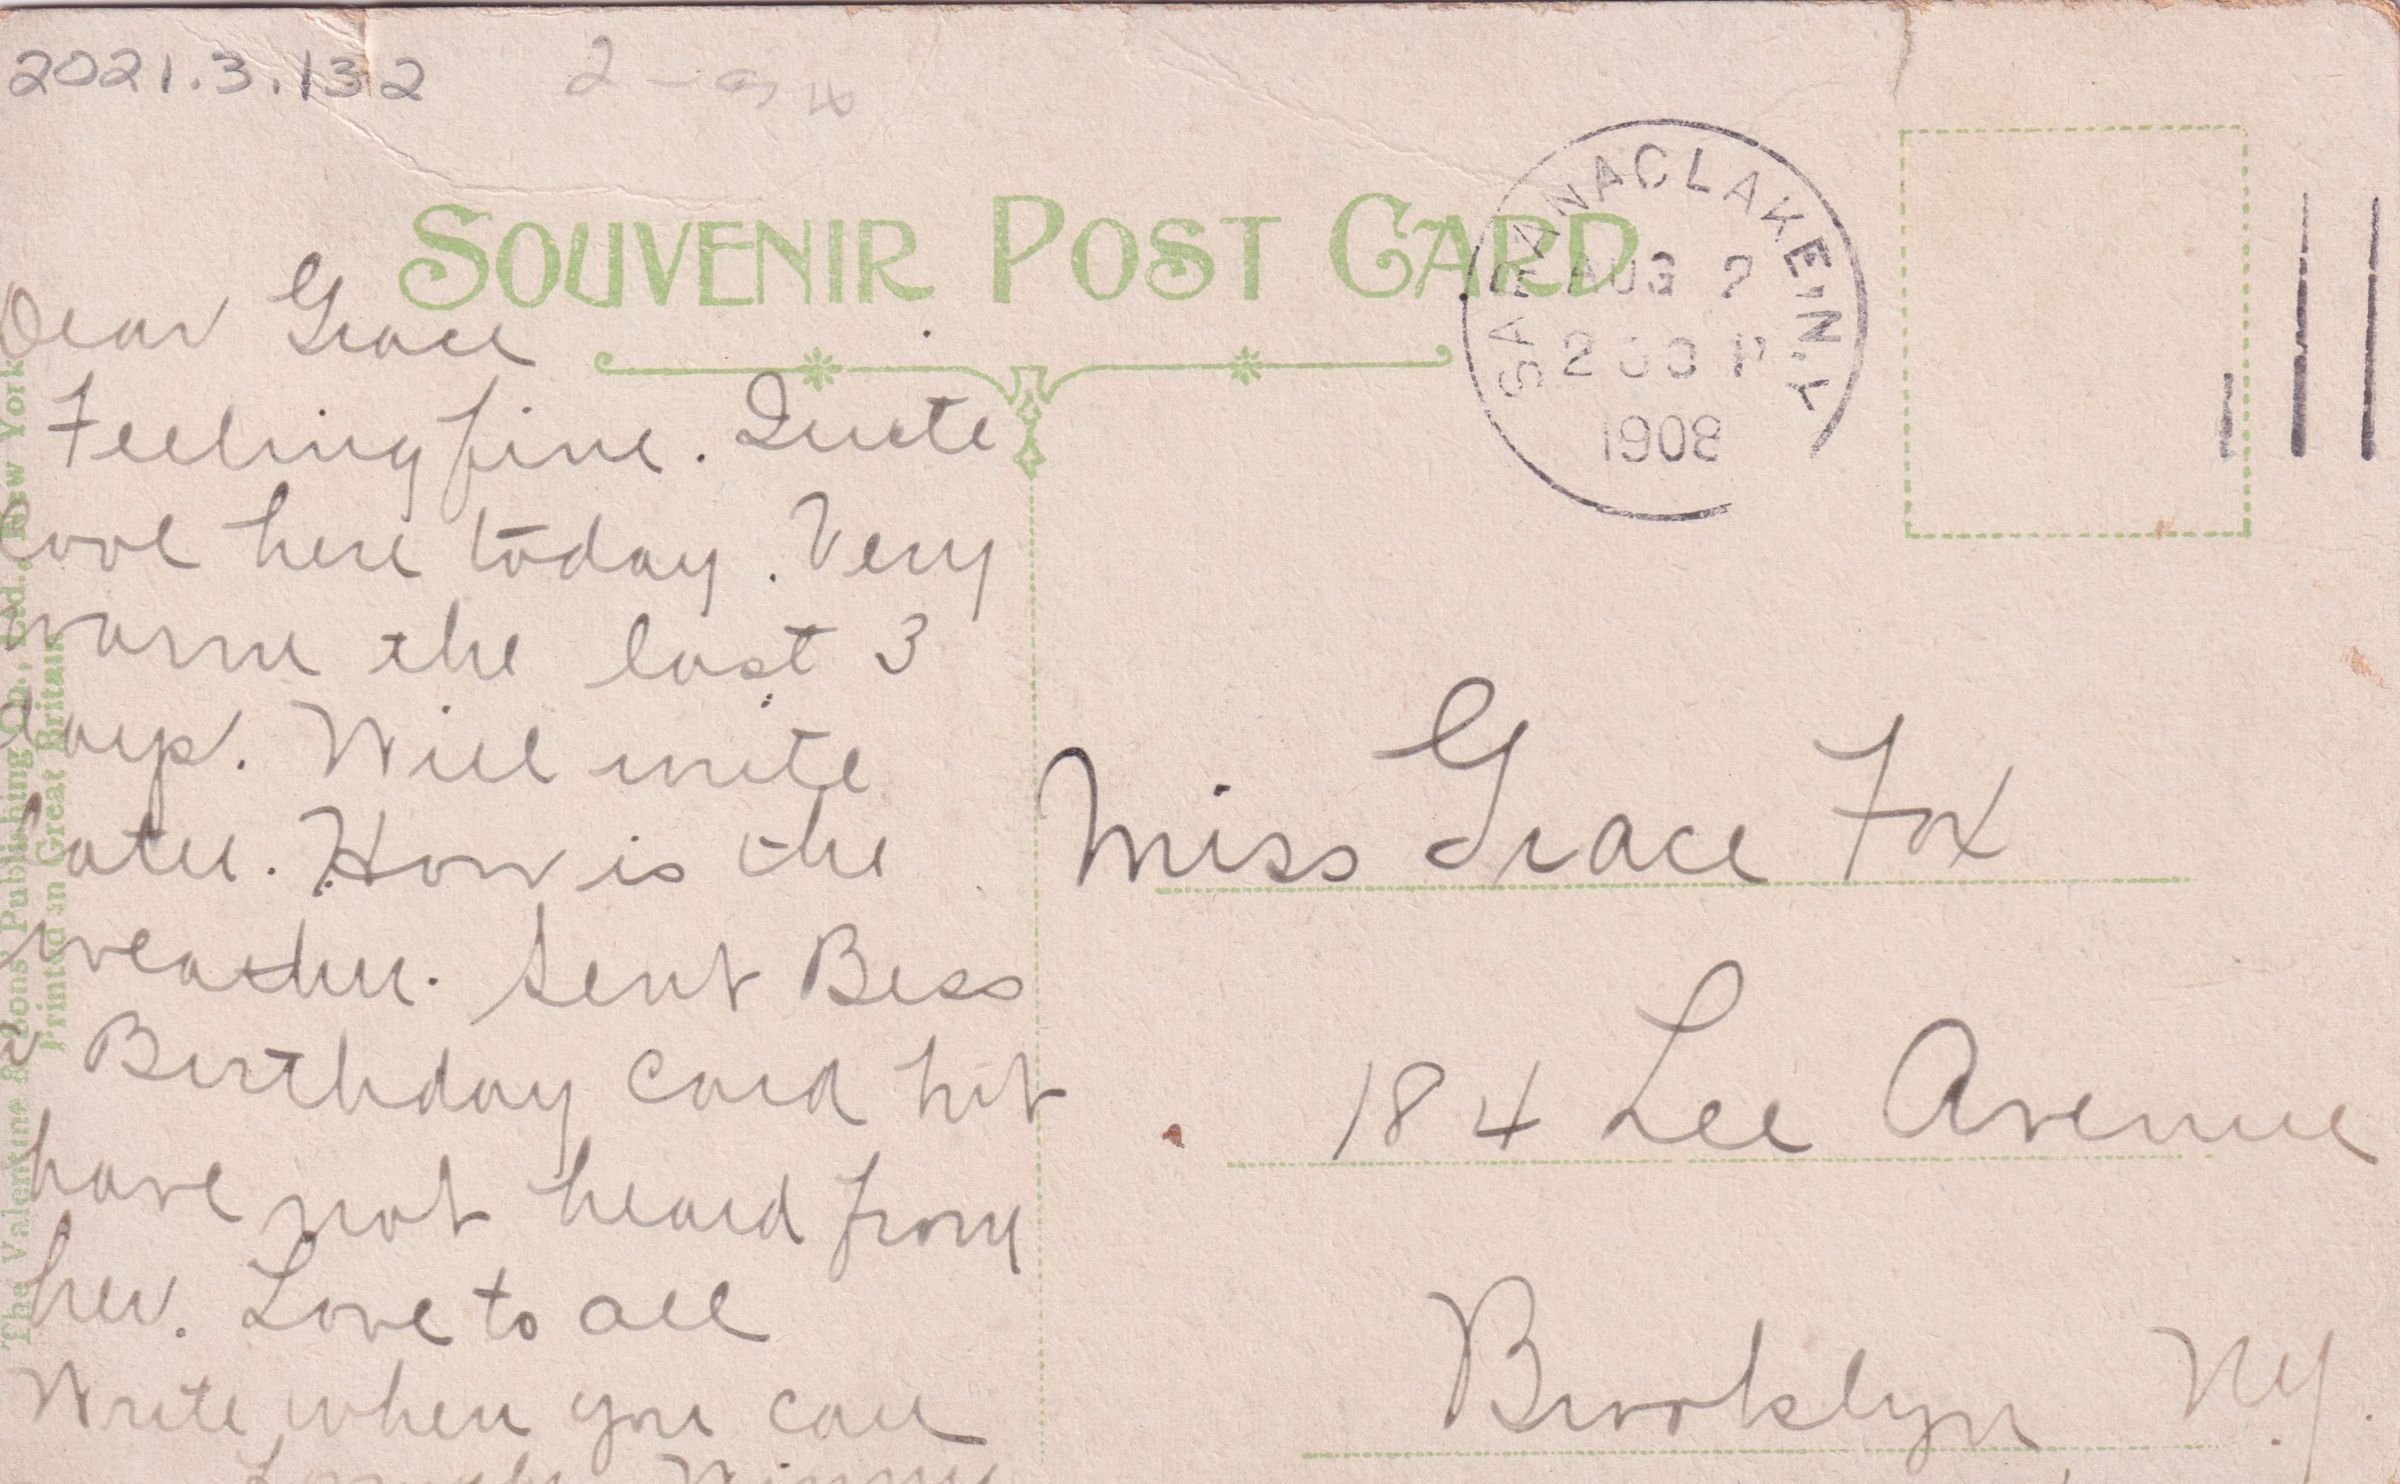 2021.3.132
SOUVENIR POST CARD
SARANAC LAKE, N.Y.
AUG 2
2 00 P
1908
Dear Grace
Feeling fine. Quite
cool here today. Very
warm the last 3
days. Will write
later. How is the
weather. Sent Bess
a Birthday card but
have not heard from
her. Love to all
Write when you can
Miss Grace Fox
184 Lee Avenue
Brooklyn, NY.
The Valentine & Sons Publishing Co., Ltd., New York
Printed in Great Britain